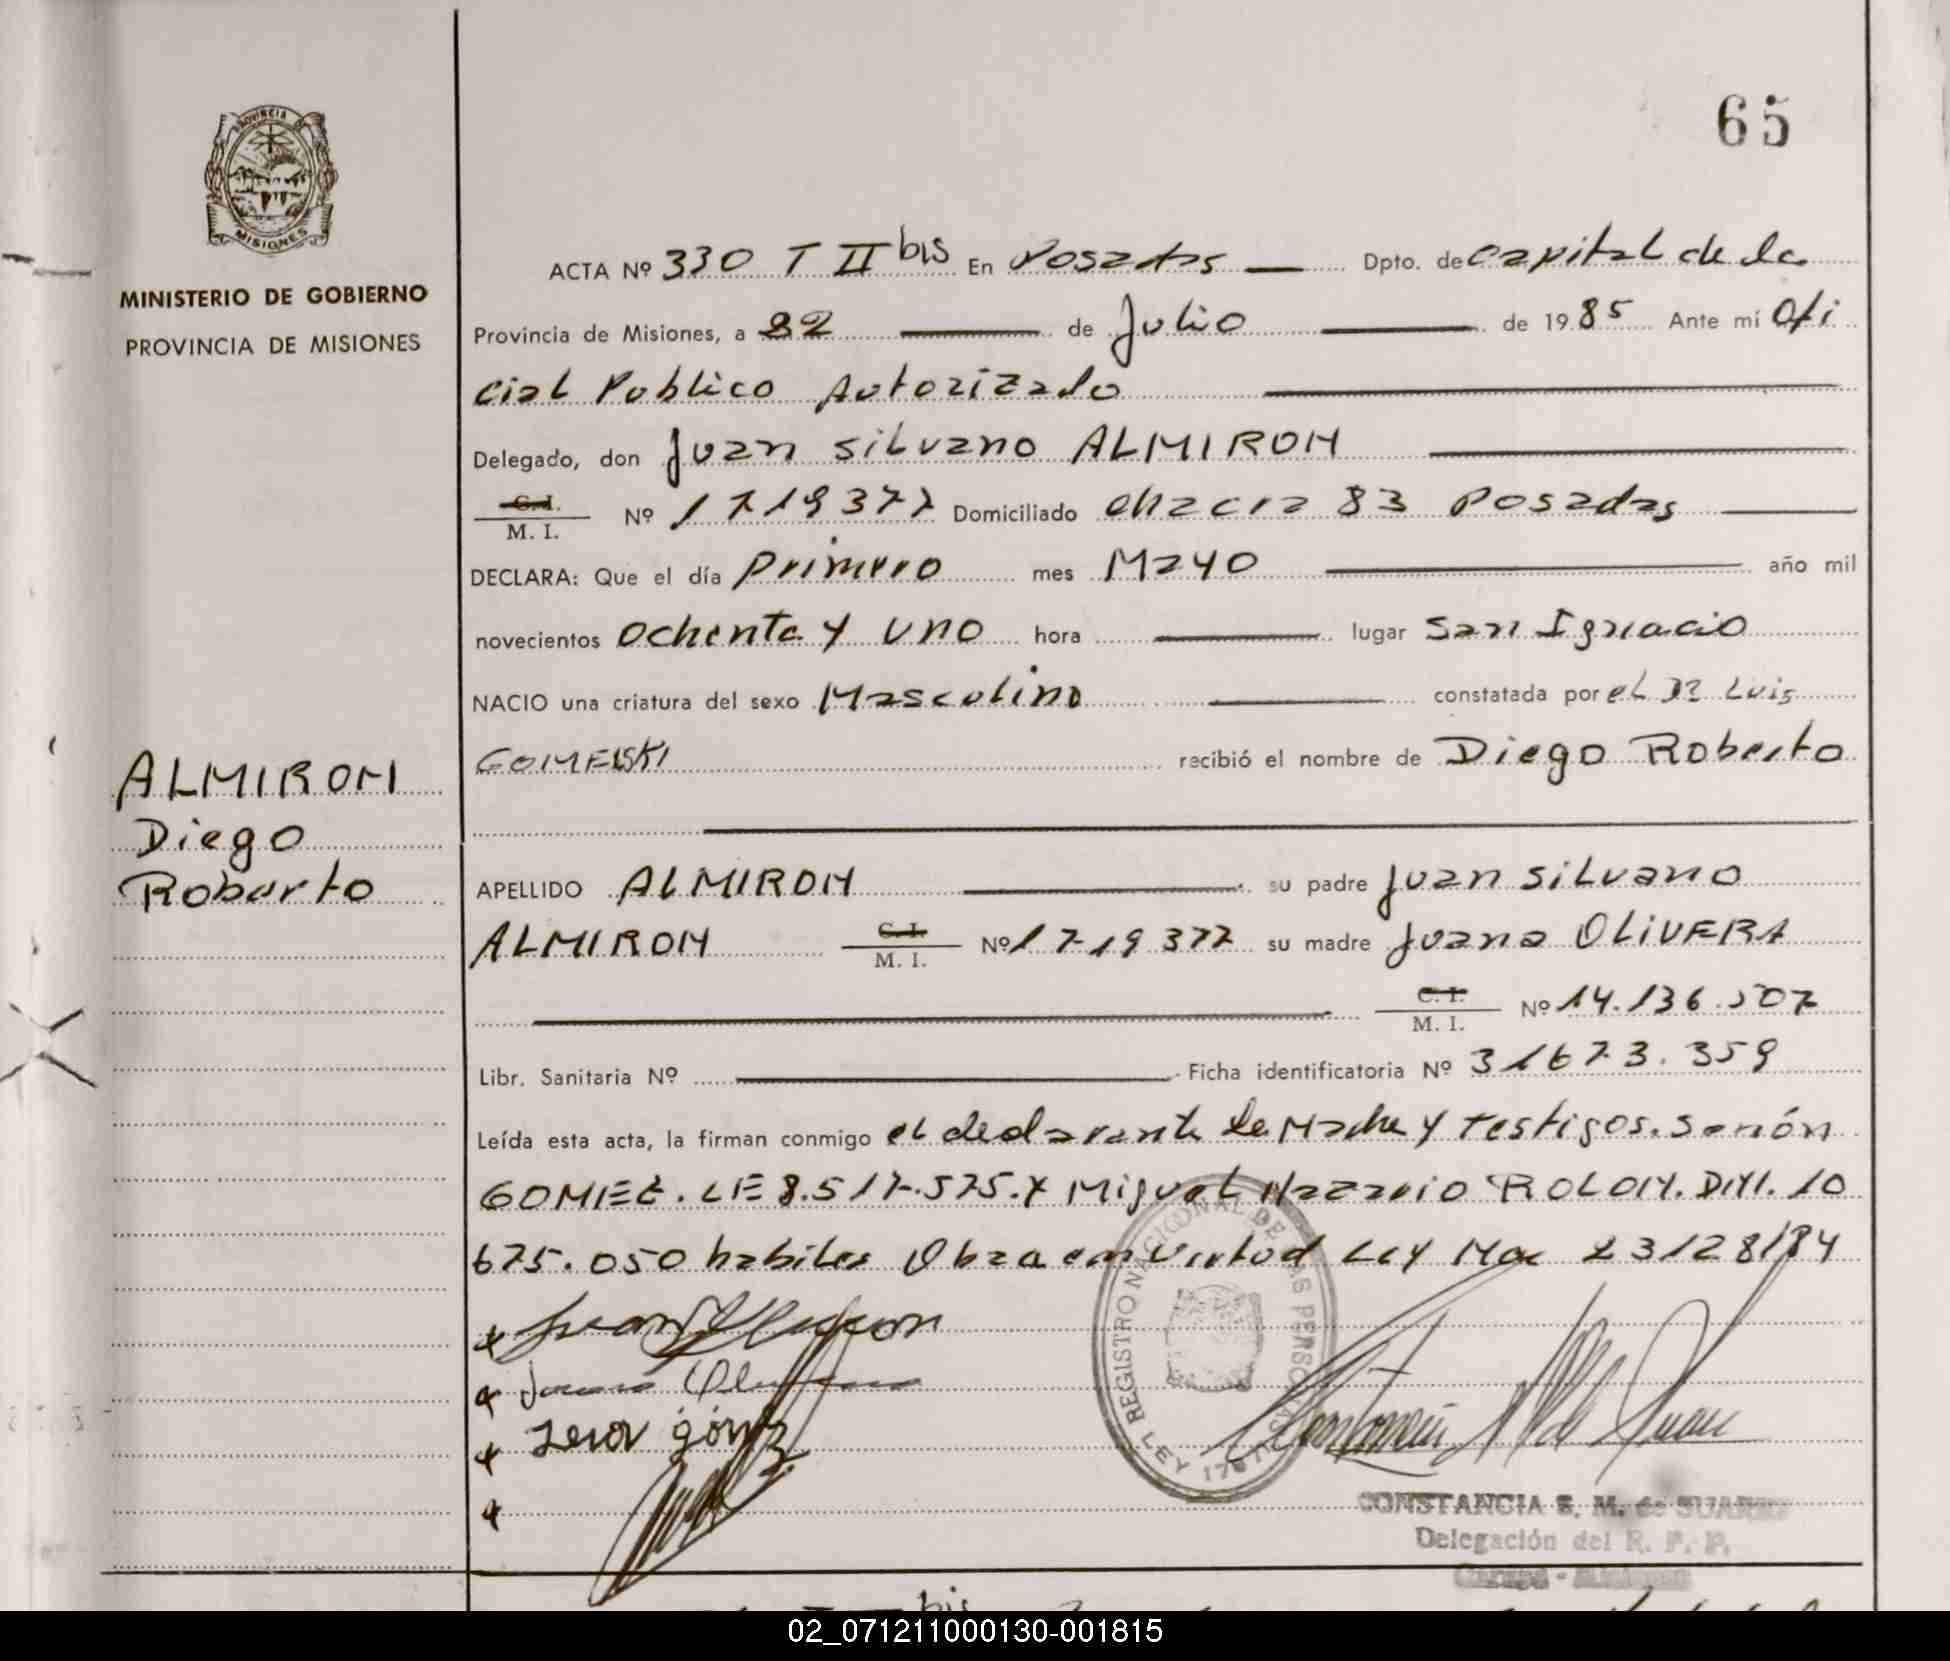 65
PROVINCIA DE
MISIONES
MINISTERIO DE GOBIERNO
PROVINCIA DE MISIONES
ACTA Nº 330 T II bis En Posadas Dpto. de Capital de la
Provincia de Misiones, a 22 de Julio de 1985 Ante mí Ofi
cial Publico Autorizado
Delegado, don Juan Silvano ALMIRON
C.I.
M. I. Nº 1719377 Domiciliado Chacra 83 Posadas
DECLARA: Que el día primero mes Mayo año mil
novecientos Ochenta y uno hora lugar San Ignacio
NACIO una criatura del sexo Masculino constatada por el Dr Luis
recibió el nombre de Diego Roberto
ALMIRON
Diego
Roberto
APELLIDO ALMIRON su padre Juan Silvano
ALMIRON C. I.
M. I. Nº 1719377 su madre Juana OLIVERA
C. I.
M. I. Nº 14.136.507
Libr. Sanitaria Nº Ficha identificatoria Nº 31673.359
Leída esta acta, la firman conmigo el declarante la Madre y testigos. Senón
GOMEZ. LE 8.517.575. y Miguel Nazario ROLON. DNI. 10
675.050 habiles Obra en virtud Ley Nac 23128/84
REGISTRO NACIONAL DE LAS PERSONAS
LEY
CONSTANCIA S. M. de SUAREZ
Delegación del R. P. P.
bis
02_071211000130-001815